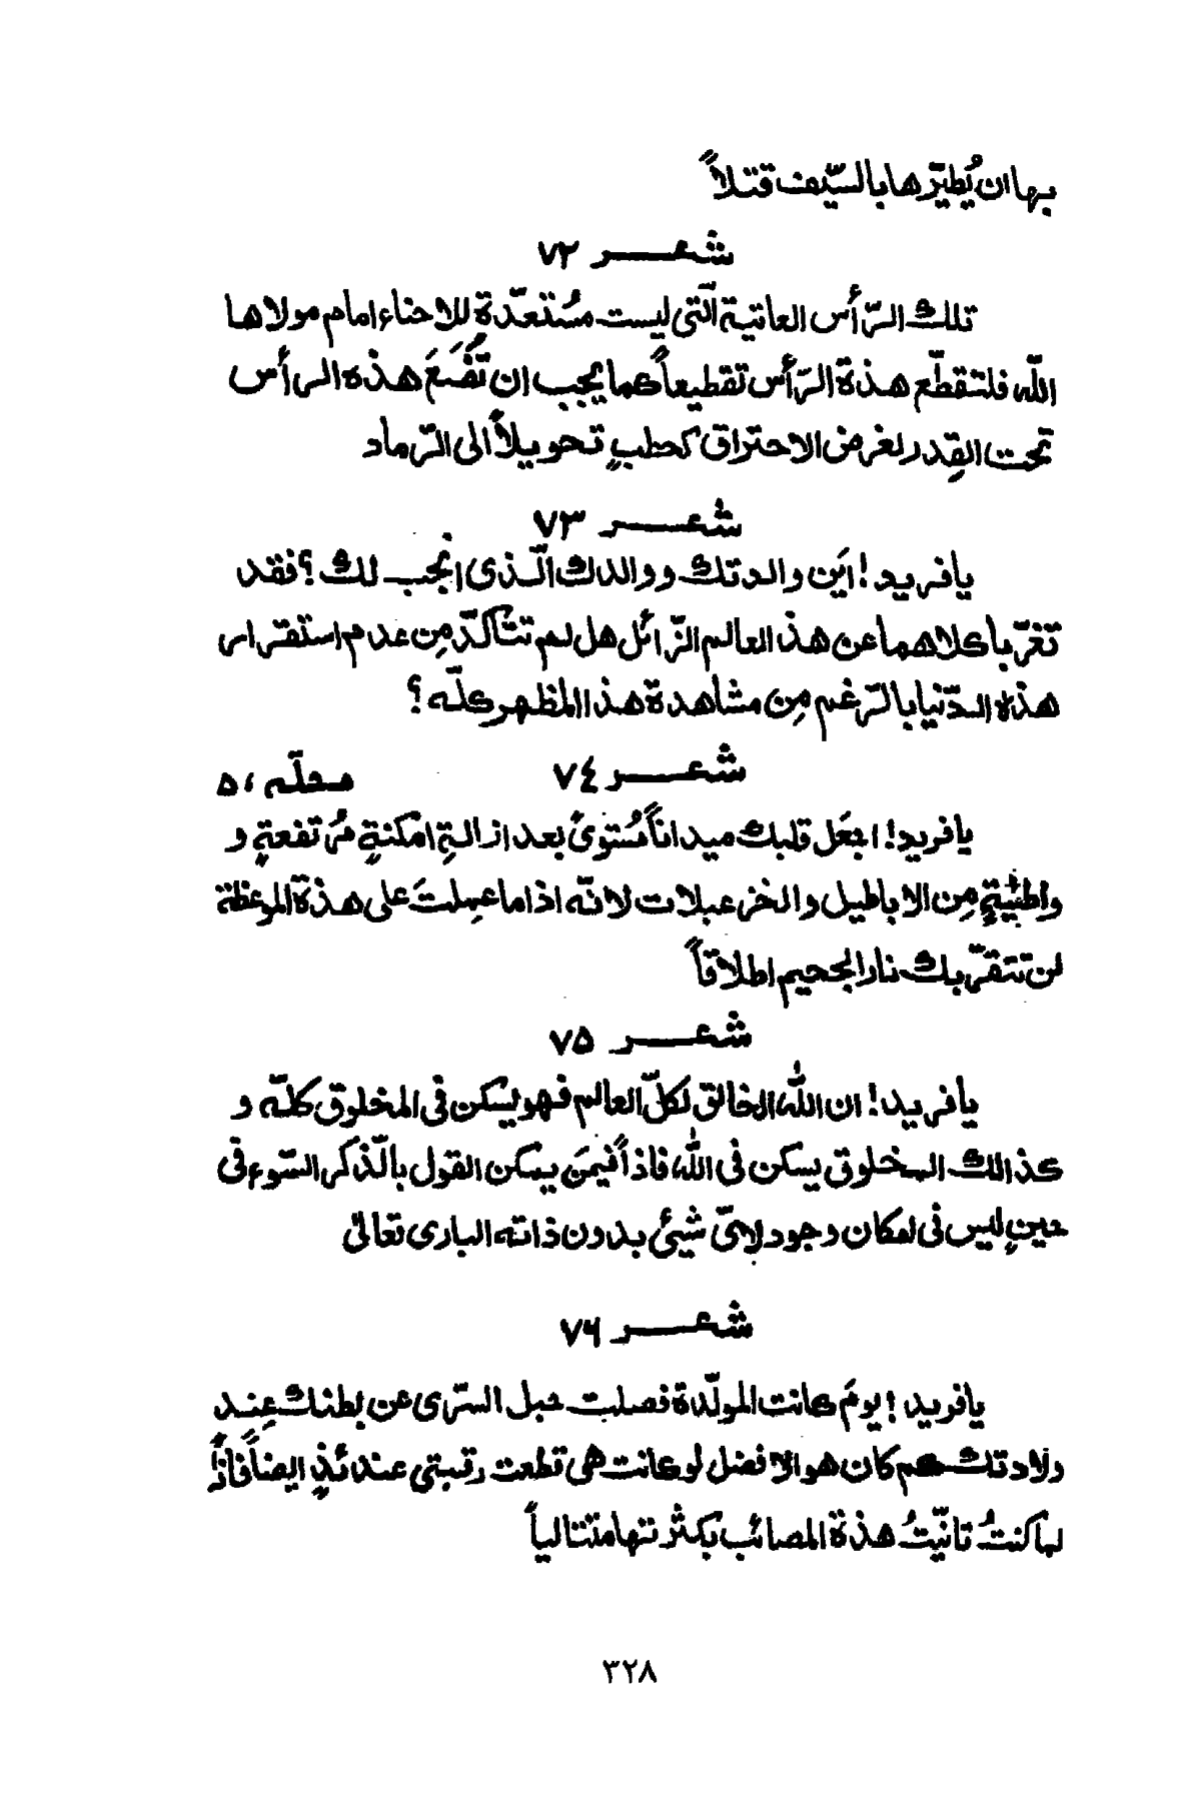 بها ان يُطيّرها بالسّيف قتلاً
شعر ٧٢
تلك الرّأس العاتية الّتى ليست مُستعدّة للاحناء امام مولاها
اللّه فلتقطّع هذة الرّأس تقطيعاً كما يجب ان تَضَعَ هذه الرأس
تحت القِدر لغرض الاحتراق كحطبٍ تحويلاً الى الرّماد
شعر ٧٣
يا فريد! اَين والدتك ووالدك الّذى انجب لك؟ فقد
تغرّبا كلاهما عن هذ العالم الزّائل هل لم تتأكّد مِن عدم استقرار
هذه الدّنيا بالرّغم مِن مشاهدة هذا المظهر كلّه؟
شعر ٧٤
محلّه ،۵
يا فريد! اجعَل قلبك ميداناً مُستوىً بعد ازالةِ امكنةٍ مُرتفعةٍ و
واطئيةٍ مِن الاباطيل والخزعبلات لانّه اذا ما عمِلتَ على هذة الموعظة
لن تتقرّبك نار الجحيم اطلاقاً
شعر ٧۵
يا فريد! ان اللّٰه الخالق لكلّ العالم فهو يسكن فى المخلوق كلّه و
كذالك المخلوق يسكن فى اللّٰه فاذاً فيمَن يمكن القول بالّذكر السّوء فى
حينٍ ليس فى امكان وجود لاىّ شيئٍ بدون ذاته البارى تعالىٰ
شعر ٧٦
يا فريد! يومَ كانت المولّدة فصلت حبل السّرى عن بطنك عِند
ولادتك كم كان هو الافضل لو كانت هى قطعت رقبتى عندئذٍ ايضاً فاذاً
لما كنتُ تانّيتُ هذة المصائب بكثرتها متتالياً
٣٢٨